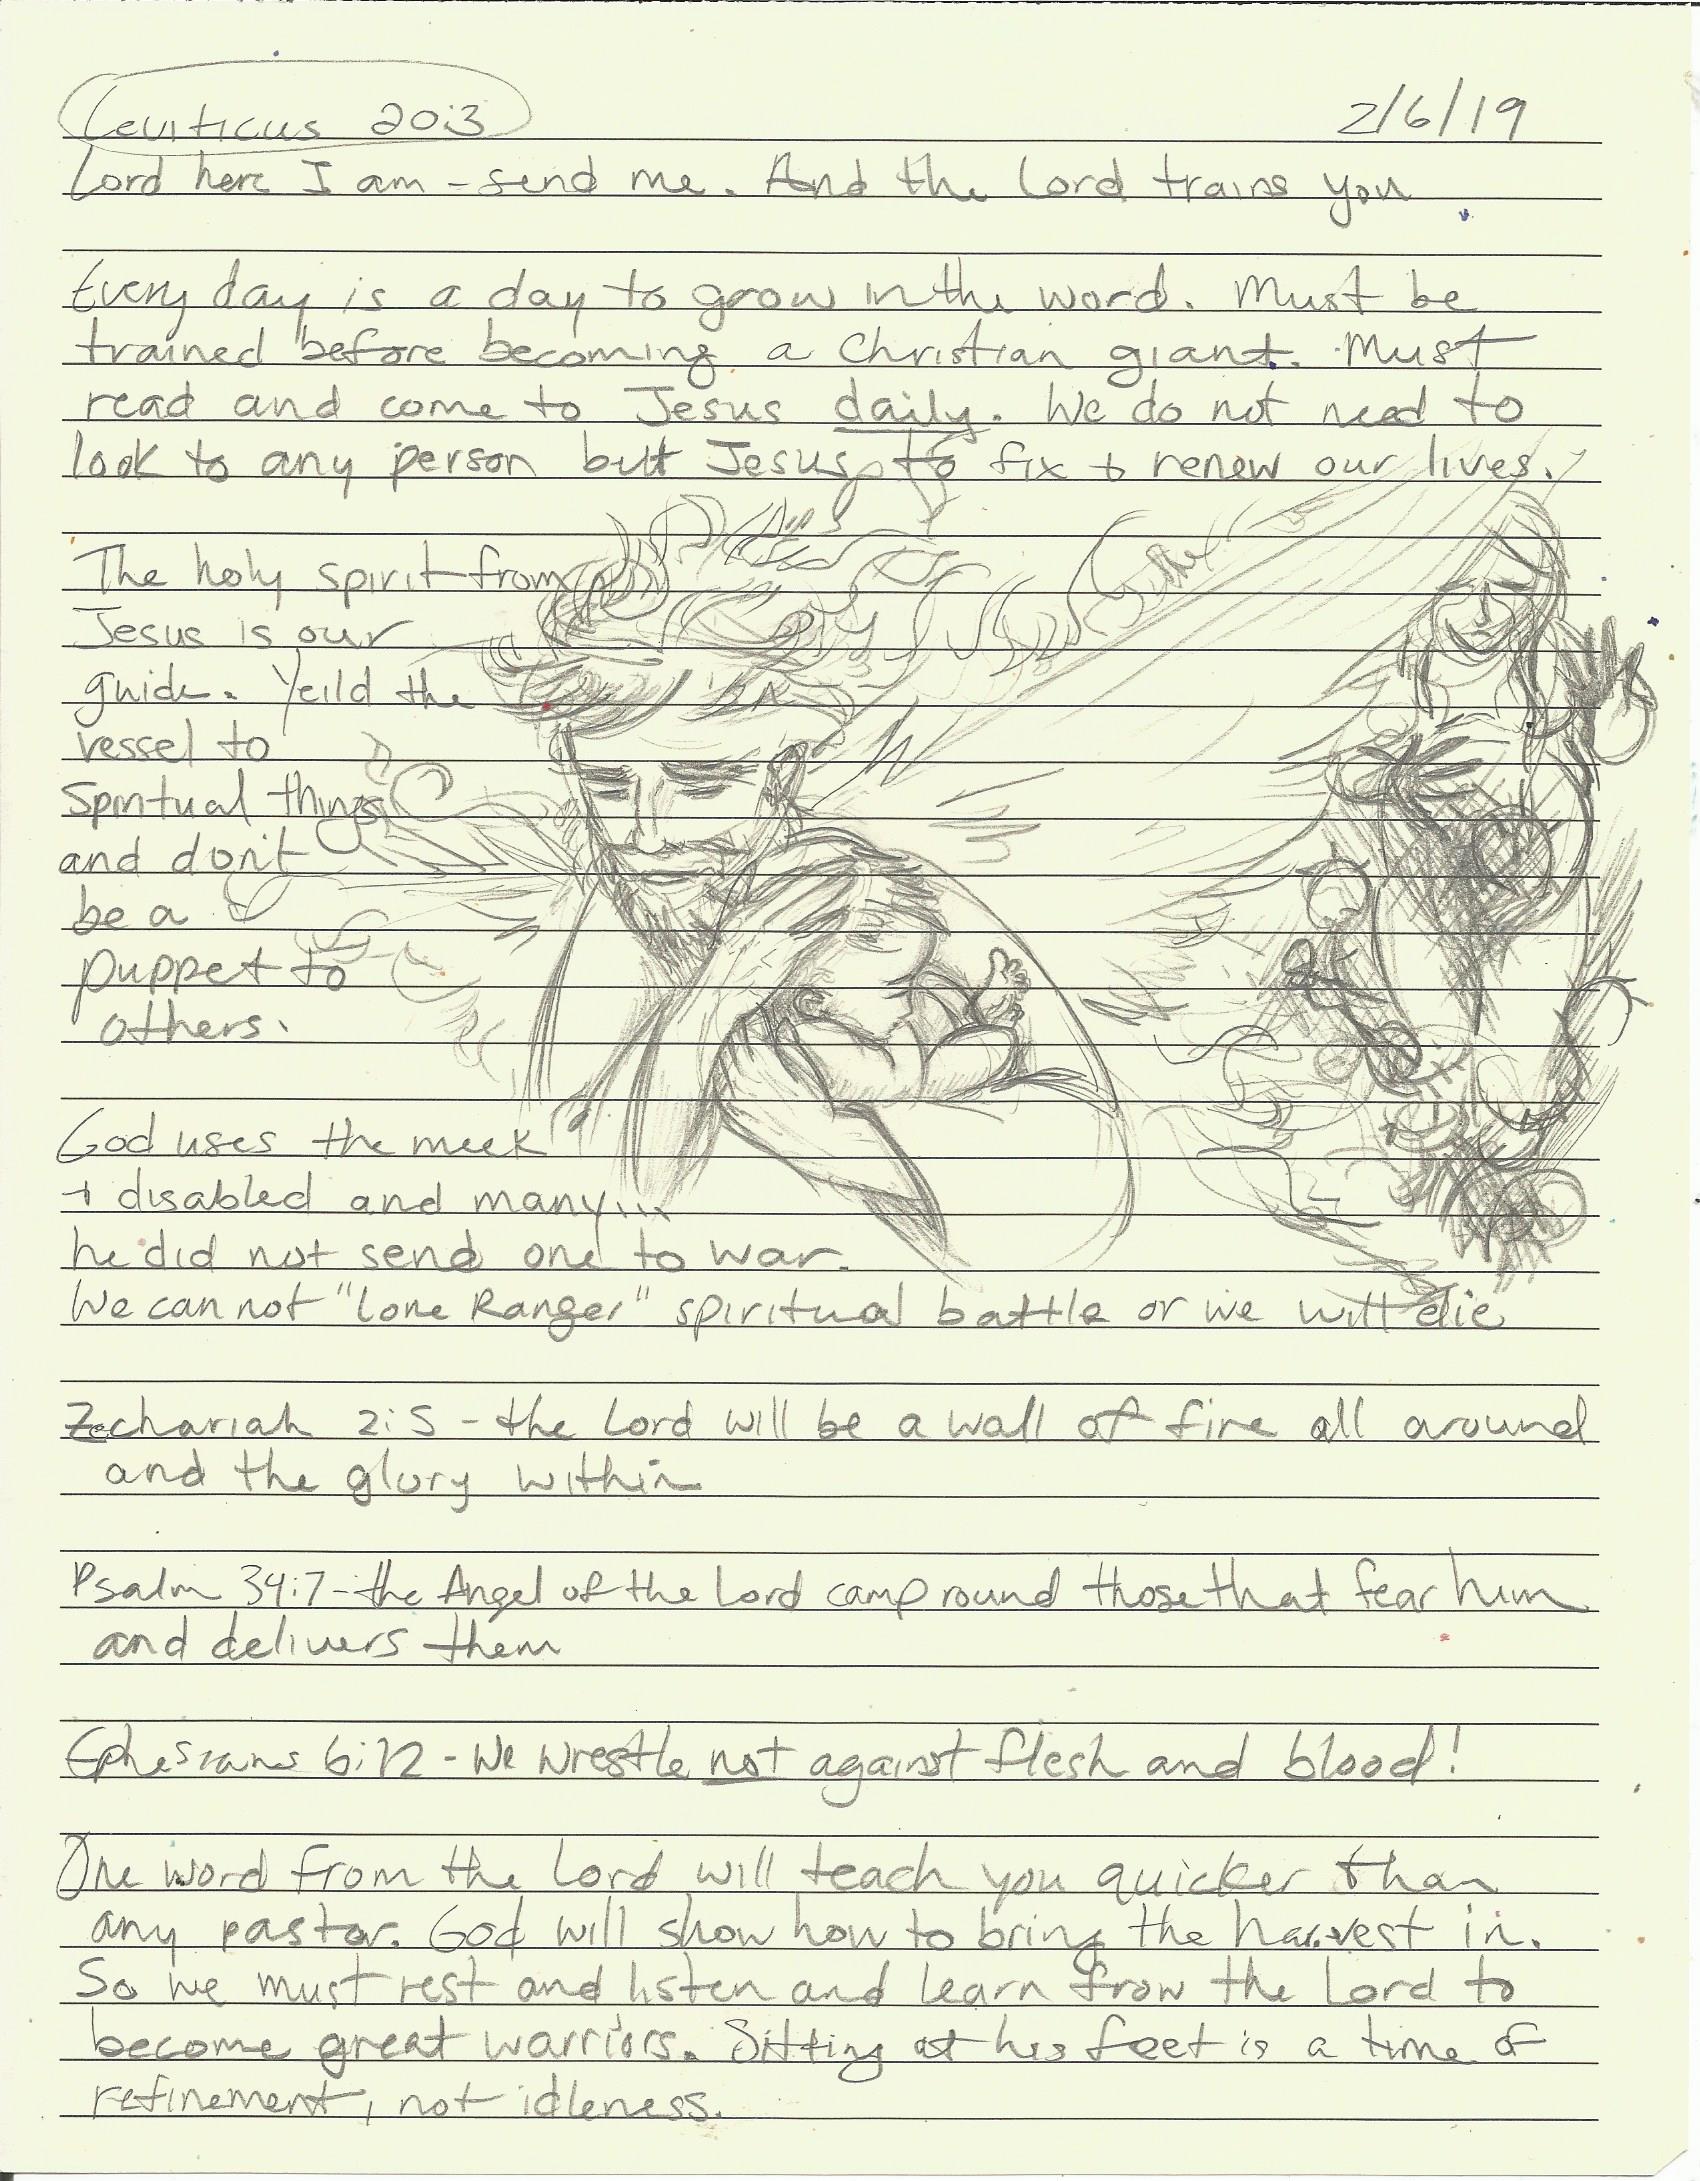 Leviticus 20:3
2/6/19
Lord here I am - send me. And the Lord trains you
Every day is a day to grow in the word. Must be
trained before becoming a Christian giant. Must
read and come to Jesus daily. We do not need to
look to any person but Jesus to fix + renew our lives.
The holy spirit from
Jesus is our
guide. Yeild the
vessel to
Spiritual things
and don't
be a
puppet to
others.
God uses the meek
+ disabled and many...
he did not send one to war.
We can not "Lone Ranger" spiritual battle or we will die
Zechariah 2:5 - the Lord will be a wall of fire all around
and the glory within
Psalm 34:7 - the Angel of the Lord camp round those that fear him
and delivers them
Ephesians 6:12 - We wrestle not against flesh and blood!
One word from the Lord will teach you quicker than
any pastor. God will show how to bring the harvest in.
So we must rest and listen and learn from the Lord to
become great warriors. Sitting at his feet is a time of
refinement, not idleness.